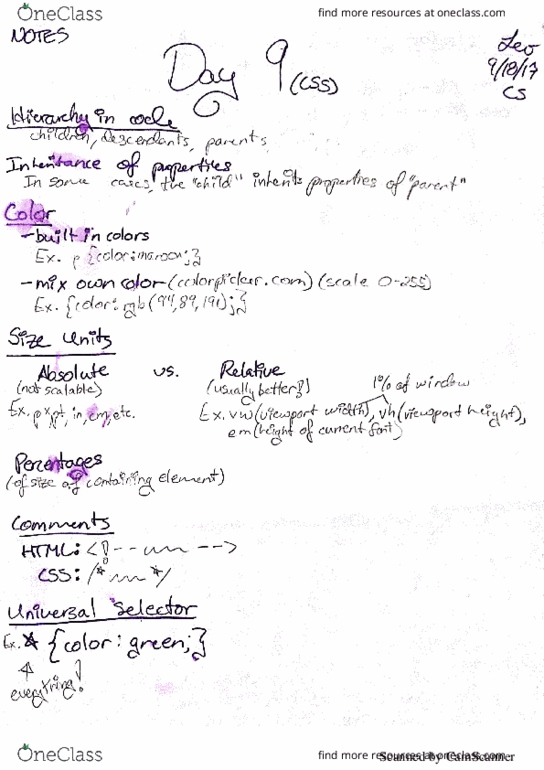 OneClass
find more resources at oneclass.com
NOTES
Leo
9/18/17
CS
Day 9 (CSS)
Hierarchy in code
children, descendants, parents
Inheritance of properties
In some cases, the "child" inherits properties of "parent"
Color
-built in colors
Ex. p {color:maroon;}
-mix own color-(colorpicker.com) (scale 0-255)
Ex. {color: rgb(94,89,191);}
Size Units
Absolute vs. Relative
(not scalable) (usually better!) 1% of window
Ex. px, pt, in, cm, etc. Ex. vw (viewport width), vh (viewport height),
em (height of current font)
Percentages
(of size of containing element)
Comments
HTML: <!-- -->
CSS: /* */
Universal Selector
Ex. * {color: green;}
everything!
OneClass
find more resources at oneclass.com
Scanned by CamScanner